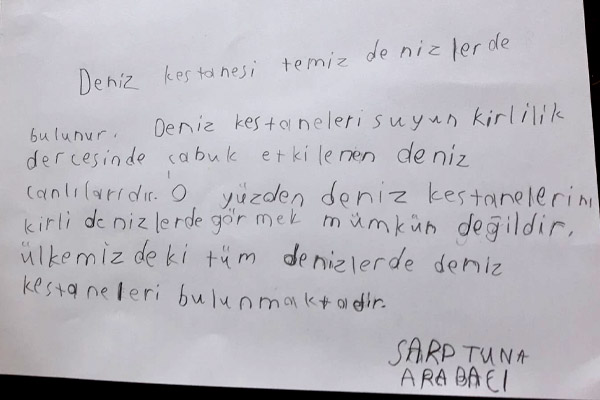 Deniz kestanesi temiz denizlerde
bulunur. Deniz kestaneleri suyun kirlilik
dercesinde çabuk etkilenen deniz
canlılarıdır. O yüzden deniz kestanelerini
kirli denizlerde görmek mümkün değildir.
ülkemizdeki tüm denizlerde deniz
kestaneleri bulunmaktadir.
SARP TUNA
ARABACI